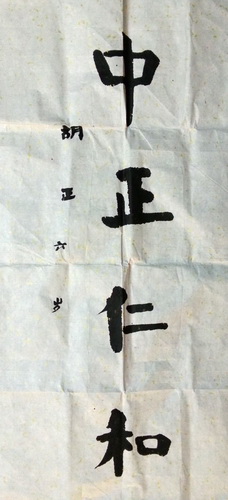 中正仁和
胡正六岁